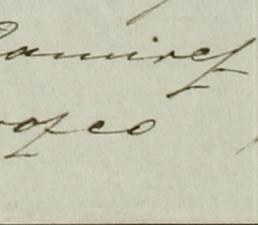 Ramirez
rozco